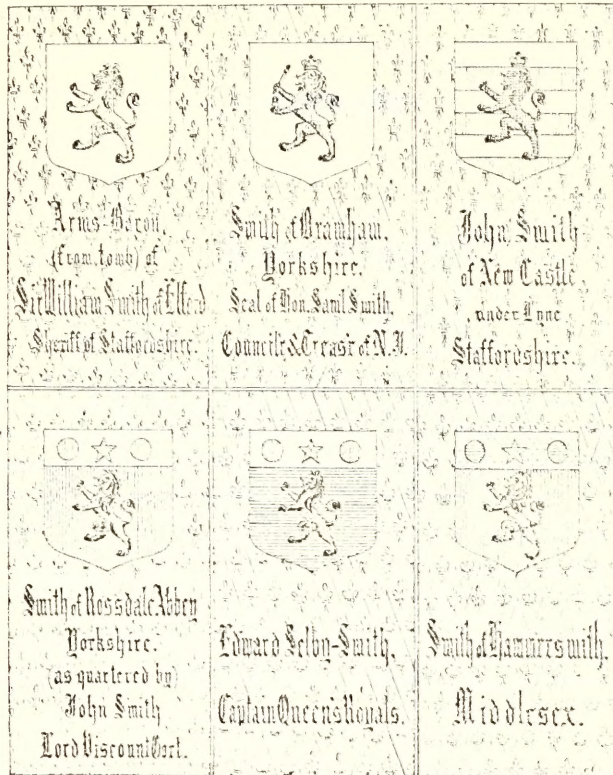 Arms-Bacon,
(from tomb) of
Sir William Smith of Elferd
Sheriff of Staffordshire.
Smith of Bramham,
Yorkshire.
Seal of Hon. Saml Smith,
Councilr & Treasr of N.J.
John Smith
of New Castle
under Lyne
Staffordshire.
Smith of Rossdale Abbey
Yorkshire.
(as quartered by)
John Smith
Lord Viscount Gort.
Edward Selby-Smith,
Captain Queen's Royals.
Smith of Hammersmith,
Middlesex.